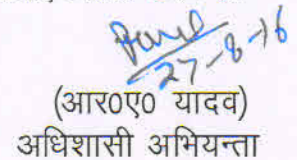 27-8-16
(आर0ए0 यादव)
अधिशासी अभियन्ता